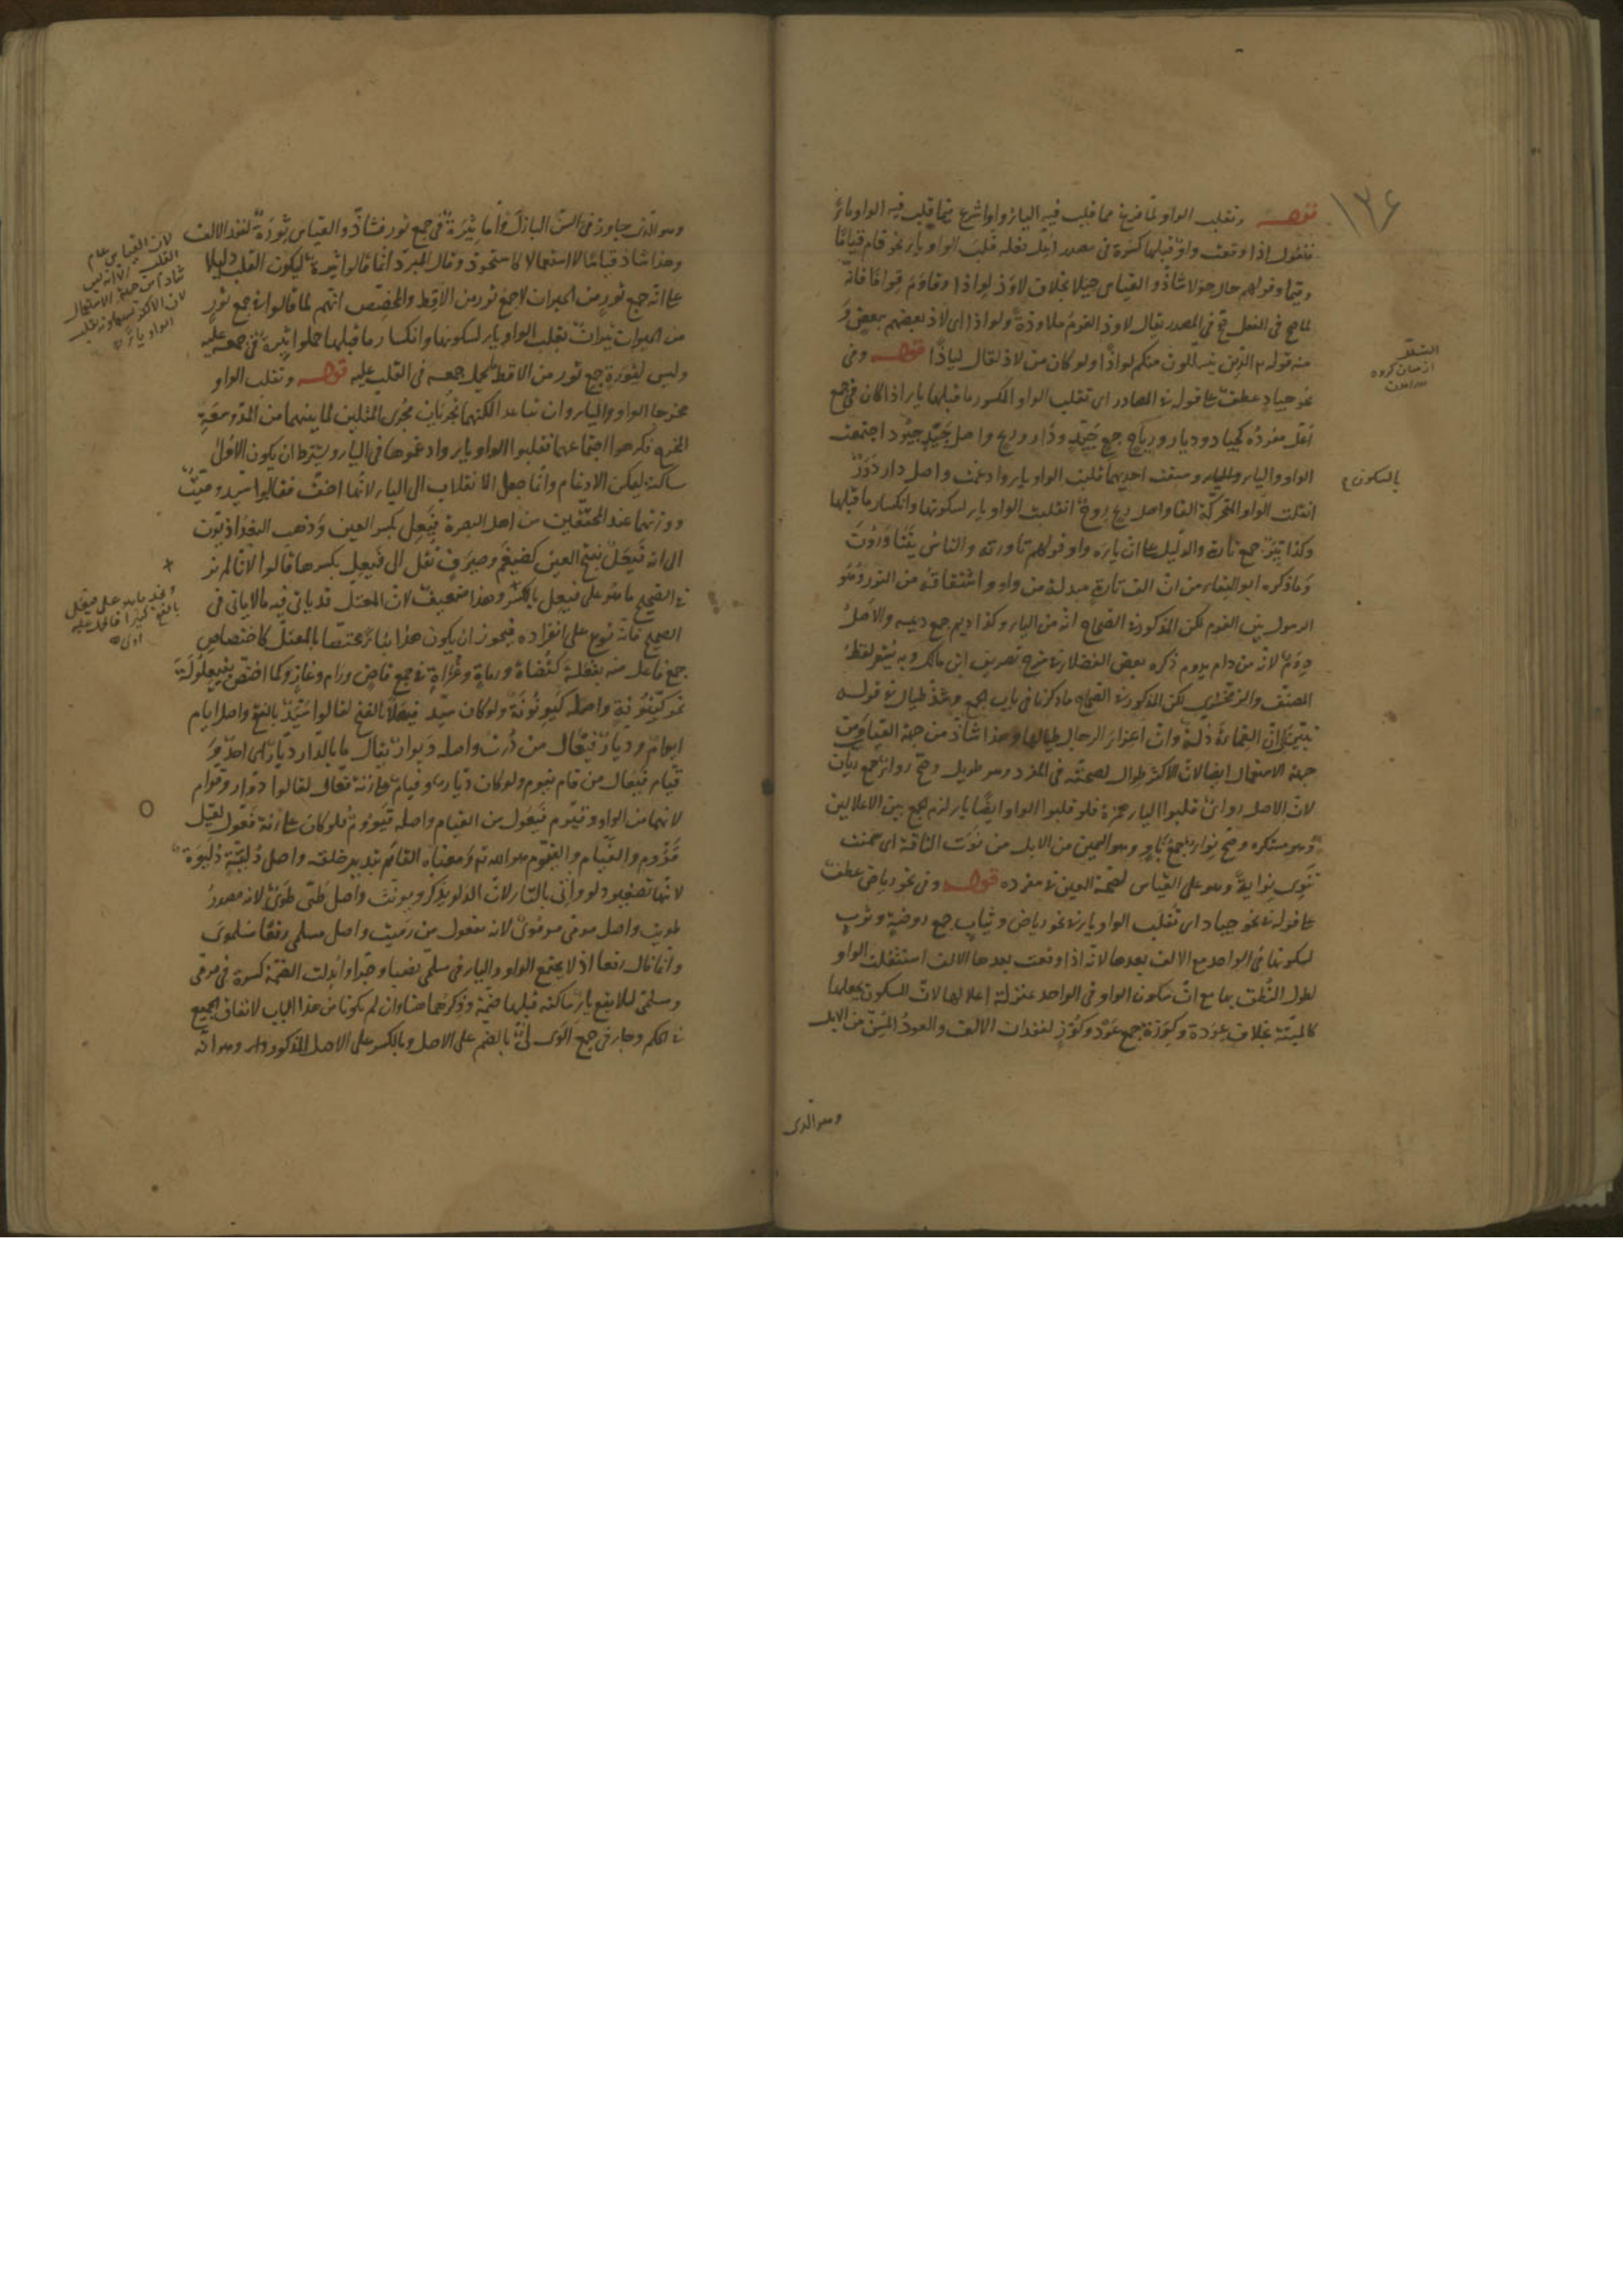 ١٣٤
قوله وتقلب الواو لما فرغ مما قلب فيه الياء واوا شرع فيما قلب فيه الواو ياء
فنقول اذا وقعت واو قبلها كسرة فى مصدر اعل فعله قلبت الواو ياء نحو قام قياما
وقيما وقولهم حال حولا شاذ والقياس حيلا بخلاف لاوذ لواذا وقاوم قواما فانه
لما صح فى الفعل صح فى المصدر يقال لاوذ القوم ملاوذة ولواذا اى لاذ بعضهم ببعض و
منه قوله الذين يتسللون منكم لواذا ولو كان من لاذ لقال لياذا قوله وفى
نحو جياد عطف على قوله فى المصادر اى تقلب الواو المكسور ما قبلها ياء اذا كان فى جمع
اعل مفرده كجياد وديار ورياح جمع جيد ودار وريح واصل جيد جيود اجتمعت
الواو والياء وسبقت احديهما قلبت الواو ياء وادغمت واصل دار دور
انقلبت الواو المتحركة الفا واصل ريح روح انقلبت الواو ياء لسكونها وانكسار ما قبلها
وكذا تير جمع تارة والدليل على ان ياءه واو قولهم تاورته والناس يتتاورون
وما ذكره ابو البقاء من ان الف تارة مبدلة من واو واشتقاقه من التور وهو
الرسول بين القوم لكن المذكور فى الصحاح انه من الياء وكذا ديم جمع ديمه والاصل
دوم لانه من دام يدوم ذكره بعض الفضلاء فى شرح تصريف ابن مالك وبه يشعر لفظ
المصنف والزمخشرى لكن المذكور فى الصحاح ما ذكرنا فى باب الجمع وشذ طيال فى قوله
تبين لى ان القماءة ذلة وان اعزاء الرجال طيالها وهذا شاذ من جهة القياس ومن
جهة الاستعمال ايضا لان الاكثر طوال لصحته فى المفرد وهو طويل وصح رواء جمع ريان
لان الاصل رواى قلبوا الياء همزة فلو قلبوا الواو ايضا ياء لزم الجمع بين الاعلالين
وهو مستكره وصح نواء جمع ناو وهو السمين من الابل من نوت الناقة اى سمنت
تنوى نواية وهو على القياس لصحة العين فى مفرده قوله وفى نحو رياض عطف
على قوله فى نحو جياد اى تقلب الواو ياء فى نحو رياض وثياب جمع روضة وثوب
لسكونها فى الواحد مع الالف بعدها لانه اذا وقعت بعدها الالف استثقلت الواو
لطول النطق بها مع ان سكون الواو فى الواحد بمنزلة اعلالها لان السكون يجعلها
كالميتة بخلاف عودة وكوزة جمع عود وكوز لفقدان الالف والعود المسن من الابل
وهو الذى
بالسكون
وهو الذى جاوز فى السن البازل واما ثيرة فى جمع ثور فشاذ والقياس ثورة لفقد الالف
وهذا شاذ قياسا لا استعمالا كاستحوذ وقال المبرد انما قالوا ثيرة ليكون القلب دليلا
على انه جمع ثور من الحيوان لا جمع ثور من الاقط والمخصص انهم لما قالوا فى جمع ثور
من الحيوان ثيران بقلب الواو ياء لسكونها وانكسار ما قبلها حملوا ثيرة فى جمعه عليه
وليس لثورة جمع ثور من الاقط ليحمل جمعه فى القلب عليه قوله وتقلب الواو
مخرجا الواو والياء وان تباعد لكنهما تجريان مجرى المثلين لما بينهما من المد وسعة
المخرج فكرهوا اجتماعهما فقلبوا الواو ياء وادغموها فى الياء ويشترط ان يكون الاول
ساكنة ليمكن الادغام وانما جعل الانقلاب الى الياء لانها اخف فقالوا سيد وميت
ووزنهما عند المحققين من اهل البصرة فيعل بكسر العين وذهب البغداذيون
الى انه فيعل بفتح العين كضيغم وصيرف نقل الى فيعل بكسرها قالوا لانا لم نر
فى الصحيح ما هو على فيعل بالكسر وهذا ضعيف لان المعتل قد ياتى فيه ما لا ياتى فى
الصحيح فانه نوع على انفراده فيجوز ان يكون هذا بناء مختصا بالمعتل كاختصاص
جمع فاعل منه بفعلة كقضاة ورماة وغزاة فى جمع قاض ورام وغاز وكما اختص بفيعلولة
نحو كينونة واصله كيونونة ولو كان سيد فيعلا بالفتح لقالوا سيد بالفتح واصل ايام
ايوام وديار فيعال من درت واصله ديوار يقال ما بالدار ديار اى احد و
قيام فيعال من قام يقوم ولو كان ديار وقيام على زنة فعال لقالوا دوار وقوام
لانهما من الواو وقيوم فيعول من القيام واصله قيووم فلو كان على زنة فعول لقيل
قووم والقيام والقيوم هو الله تع ومعناه القائم بتدبير خلقه واصل دلية دليوة
لانها تصغير دلو واتى بالتاء لان الدلو يذكر ويونث واصل طى طوى لانه مصدر
طويت واصل مرمى مرموى لانه مفعول من رميت واصل مسلمى رفعا مسلموى
وانما قال رفعا اذ لا يجتمع الواو والياء فى مسلمى نصبا وجرا وابدلت الضمة كسرة فى مرمى
ومسلمى لئلا يقع ياء ساكنة قبلها ضمة وذكرهما هنا وان لم يكونا من هذا الباب لاتفاق الجميع
فى الحكم وجاء فى جمع الوى لى بالضم على الاصل وبالكسر على الاصل المذكور وهو انه
لان القياس عام